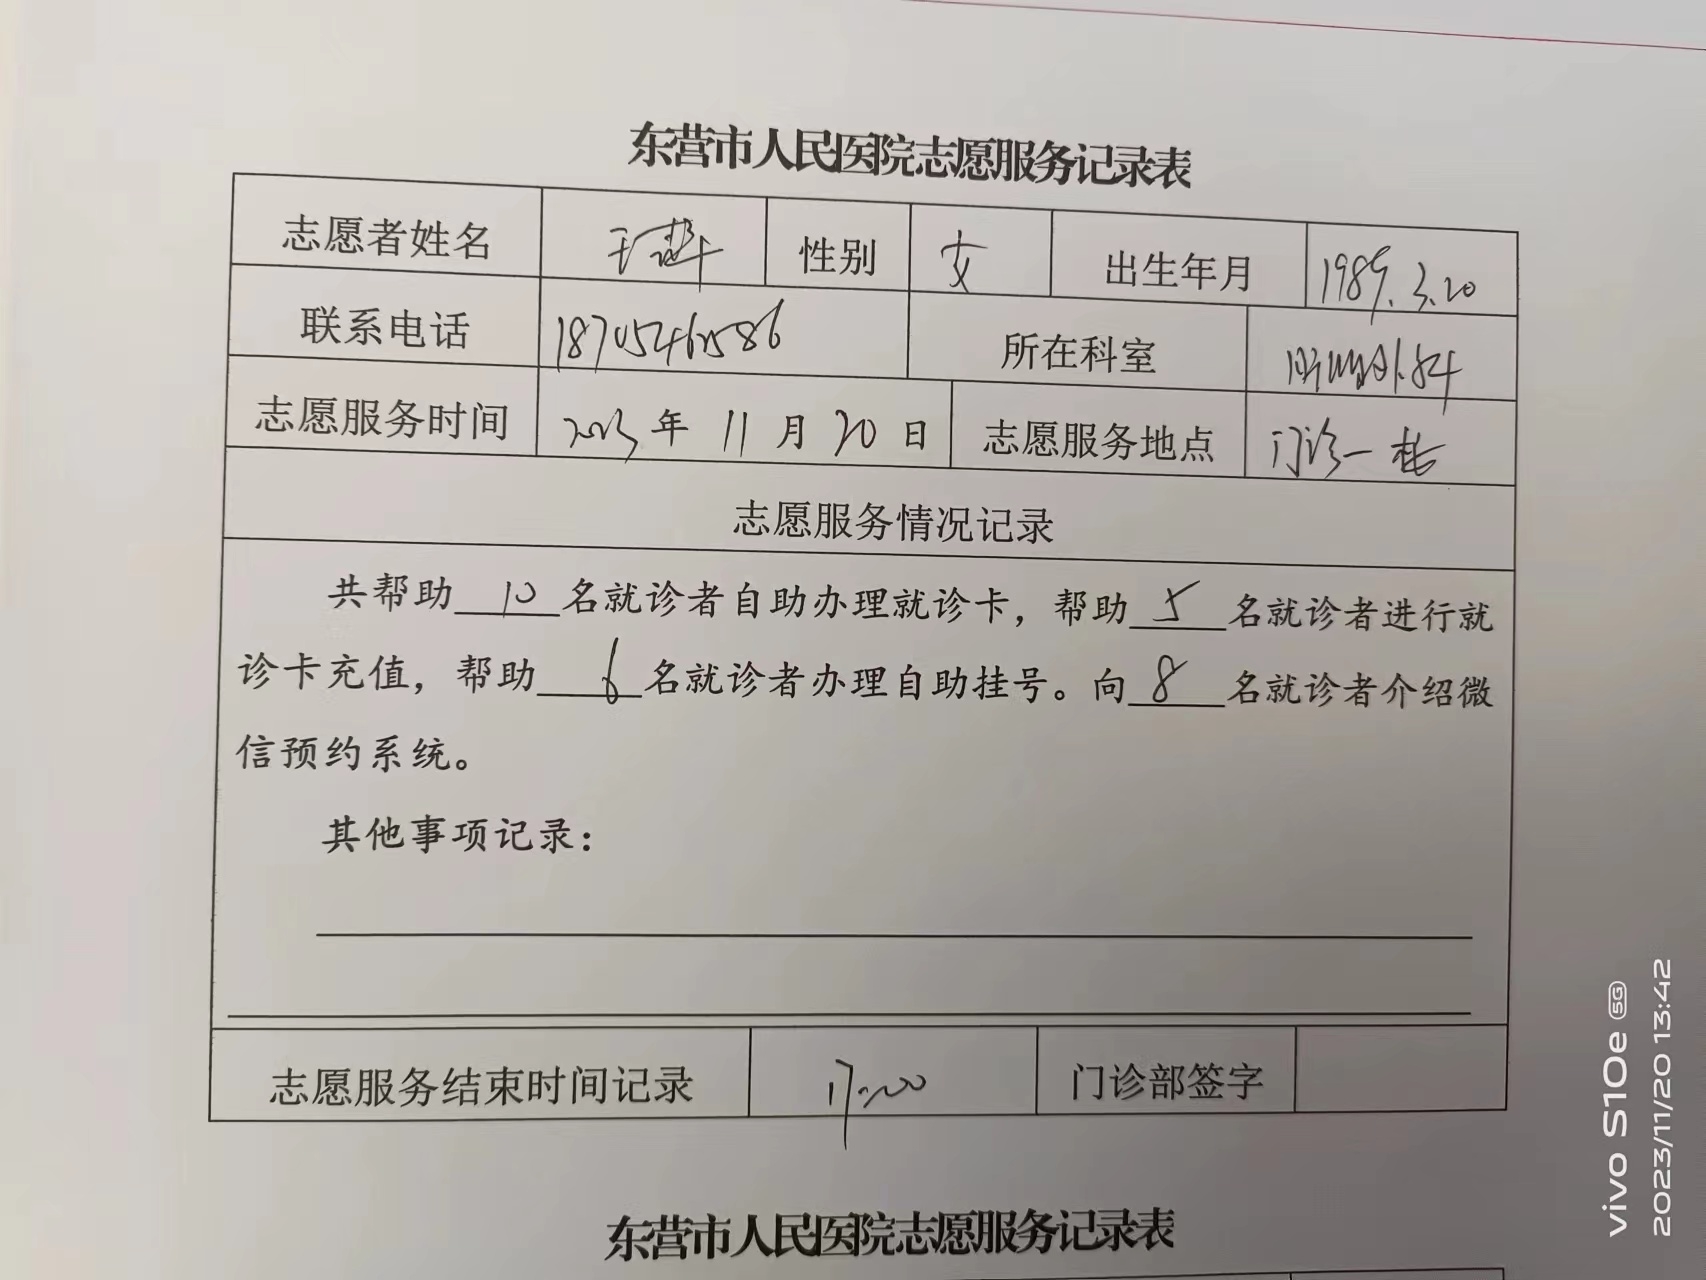 东营市人民医院志愿服务记录表
志愿者姓名 性别 女 出生年月 1989.3.20
联系电话 18705462586 所在科室
志愿服务时间 2023年11月20日 志愿服务地点 门诊一楼
志愿服务情况记录
共帮助10名就诊者自助办理就诊卡，帮助5名就诊者进行就
诊卡充值，帮助6名就诊者办理自助挂号。向8名就诊者介绍微
信预约系统。
其他事项记录：
志愿服务结束时间记录 17:00 门诊部签字
东营市人民医院志愿服务记录表
vivo S10e 5G
2023/11/20 13:42